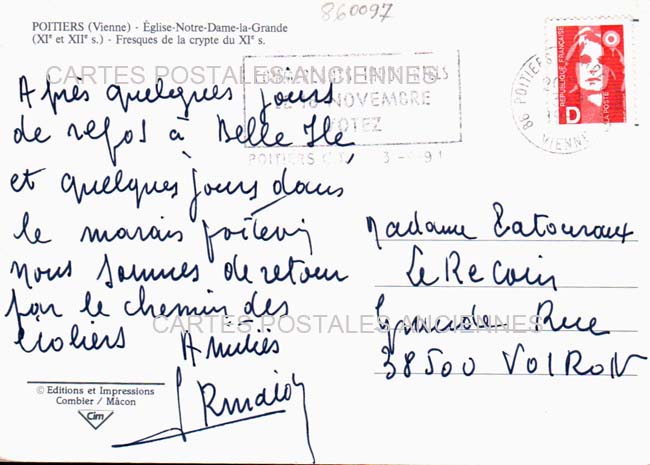 860097
POITIERS (Vienne) - Église-Notre-Dame-la-Grande
(XIe et XIIe s.) - Fresques de la crypte du XIe s.
CARTES POSTALES ANCIENNES
NOVEMBRE
VOTEZ
POITIERS
91
86 POITIERS
VIENNE
REPUBLIQUE FRANÇAISE
LA POSTE
D
Après quelques jours
de repos à Belle Ile
et quelques jours dans
le marais poitevin
nous sommes de retour
par le chemin des
écoliers Amitiés
Madame
Le Recoin
Grande Rue
38500 VOIRON
CARTES POSTALES ANCIENNES
© Editions et Impressions
Combier / Mâcon
Cim